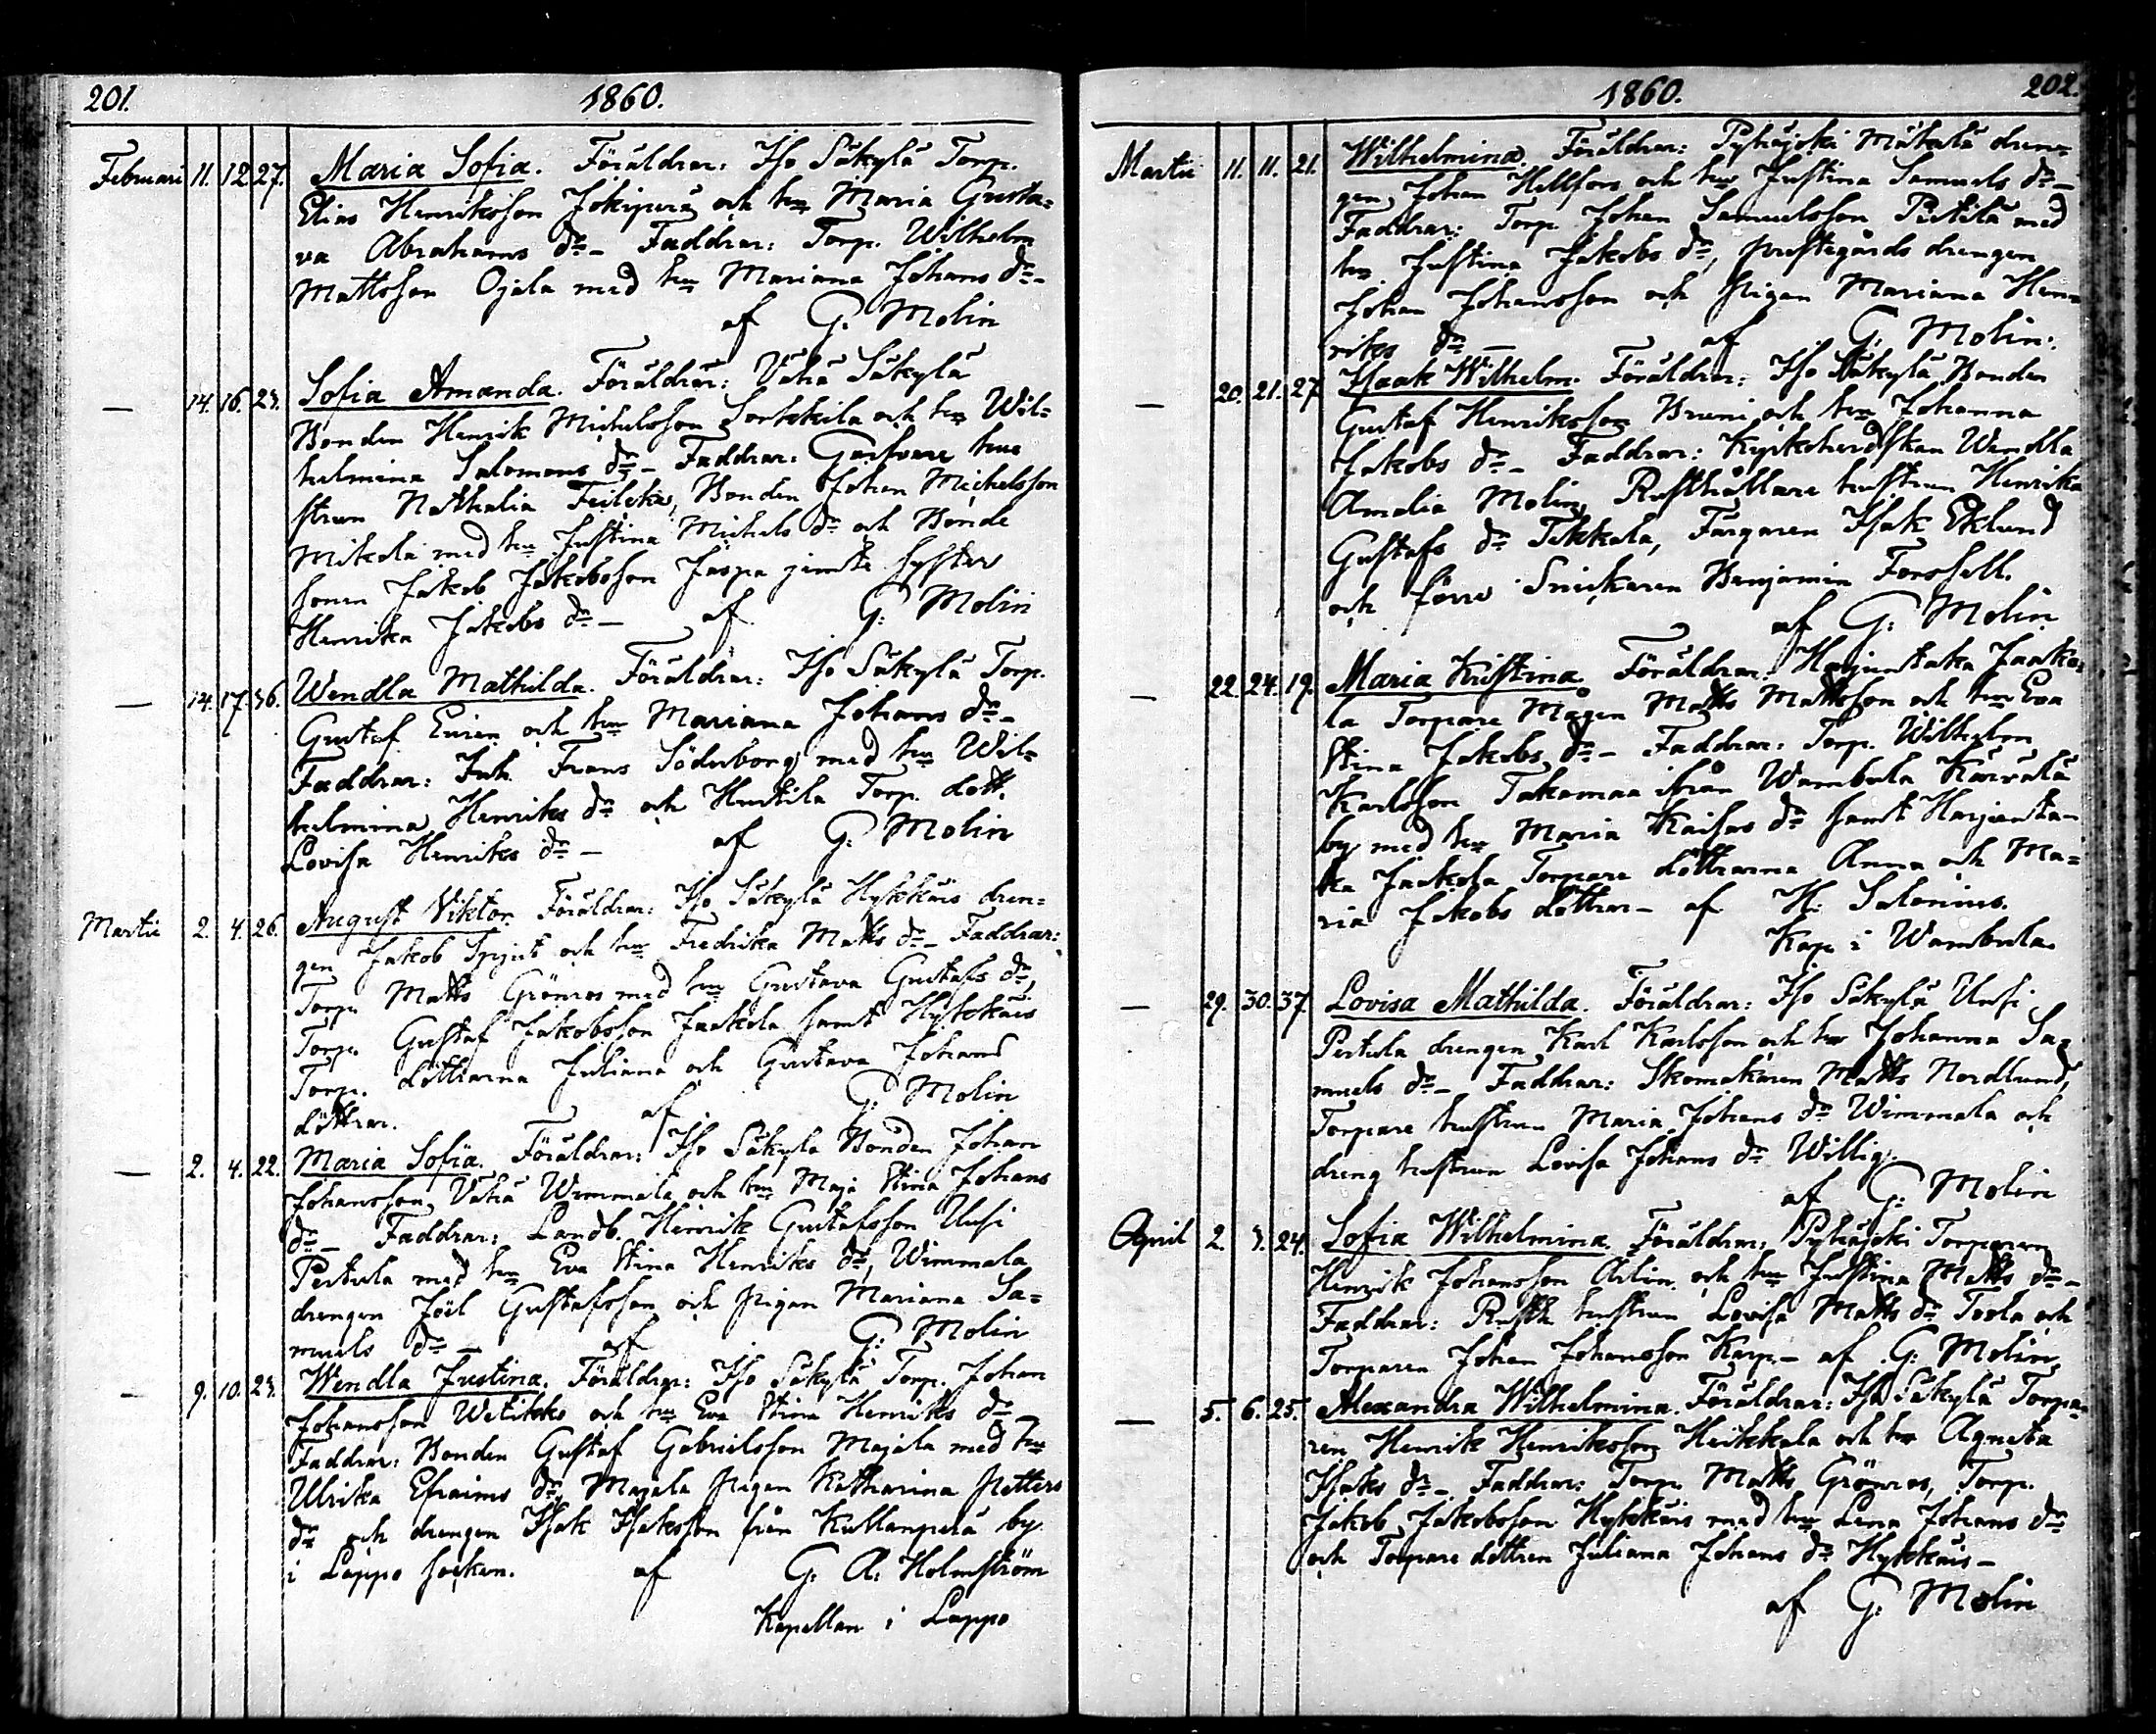 201. 1860.
Februari 11. 12. 27. Maria Sofia. Föräldrar: Iso Säkylä Torp.
Elias Henriksson Jokiperä och hu Maria Gusta=
va Abrahams dr– Faddrar: Torp. Wilhelm
Mattsson Ojala med hu Mariana Johans dr–
af G. Molin
— 14. 16. 23. Sofia Amanda. Föräldrar: Vähä Säkylä
Bonden Henrik Michelsson Sorkkila och hu Wil=
helmina Salomons dr– Faddrar: Garfvare hu
strun Nathalia Bonden Johan Michelsson
Mikola med hu Justina Michels dr och Bonde
sonen Jakob Jakobsson Jaspa jemte syster
Henrika Jakobs dr– af G. Molin
— 14. 17. 36. Wendla Mathilda. Föräldrar: Iso Säkylä Torp.
Gustaf Enin och hu Mariana Johans dr–
Faddrar: Inh. Frans Söderborg med hu Wil=
helmina Henriks dr och Huhtila Torp. dott.
Lovisa Henriks dr– af G. Molin
Martii 2. 4. 26. August Viktor. Föräldrar: Iso Säkylä Hykkäis dren=
gen Jakob och hu Fredrika Matts dr– Faddrar:
Torp. Matts Grönros med hu Gustava Gustafs dr,
Torp. Gustaf Jakobsson Jaakola samt Hykkäis
Torp. döttrarna Juliana och Gustava Johans
döttrar. af G. Molin
— 2. 4. 22. Maria Sofia. Föräldrar: Iso Säkylä Bonden Johan
Johansson Vähä Wimmala och hu Maja Stina Johans
dr– Faddrar: Landb. Henrik Gustafsson Uusi
Pertula med hu Eva Stina Henriks dr, Wimmala
drengen Joel Gustafsson och pigan Mariana Sa=
muels dr– af G. Molin
— 9. 10. 23. Wendla Justina. Föräldrar: Iso Säkylä Torp. Johan
Johansson Wetikko och hu Eva Stina Henriks dr–
Faddrar: Bonden Gustaf Gabrielsson Majala med hu
Ulrika Efraims dr, Majala pigan Katharina Petters
dr och drengen Isak Isaksson från Kullanperä by
i Lappo socken. af G. A. Holmström
Kapellan i Lappo
1860. 202.
Martii 11. 11. 21. Wilhelmina. Föräldrar: Pyhäjoki Mäkälä dren=
gen Johan Hellfors och hu Justina Samuels dr–
Faddrar: Torp. Johan Samuelsson Pietilä med
hu Justina Jakobs dr, prestegårds drengen
Johan Johansson och pigan Mariana Hen=
riks dr– af G. Molin.
— 20. 21. 27. Isaak Wilhelm. Föräldrar: Iso Säkylä Bonden
Gustaf Henriksson Bruni och hu Johanna
Jakobs dr– Faddrar: Kyrkoherdskan Wendla
Amalia Molin, Rusthållare hustrun Henrika
Gustafs dr Tikkala, Färgaren Isak Eklund
och förre Snickaren Benjamin Forssell.
af G. Molin
— 22. 24. 19. Maria Kristina. Föräldrar: Harjunstaka Jaako=
la Torpare Mågen Matts Mattsson och hu Eva
Stina Jakobs dr– Faddrar: Torp. Wilhelm
Karlsson Takamaa ifrån Wambula Kärvälä
by med hu Maria Kaisas dr samt Harjunsta=
ka Jaakola Torpare döttrarna Anna och Ma=
ria Jakobs döttrar– af H. Salonius.
Kap. i Wambula
— 29. 30. 37. Lovisa Mathilda. Föräldrar: Iso Säkylä Uusi
Pertula drengen Karl Karlsson och hu Johanna Sa=
muels dr– Faddrar: Skomakaren Matts Nordlund,
Torpare hustrun Maria Johans dr Wimmala och
dreng hustrun Lovisa Johans dr Willig.
af G. Molin
April 2. 3. 24. Sofia Wilhelmina. Föräldrar: Pyhäjoki Torparen
Henrik Johansson Arlin och hu Justina Matts dr–
Faddrar: Rusth. hustrun Lovisa Matts dr Toola och
Torparen Johan Johansson Karp.– af G. Molin
— 5. 6. 25. Alexandra Wilhelmina. Föräldrar: Iso Säkylä Torpa=
ren Henrik Henriksson Heikkala och hu Agneta
Isaks dr– Faddrar: Torp. Matts Grönros, Torp.
Jakob Jakobsson Hykkäis med hu Lena Johans dr
och Torpare dottren Juliana Johans dr Hykkäis–
af G. Molin